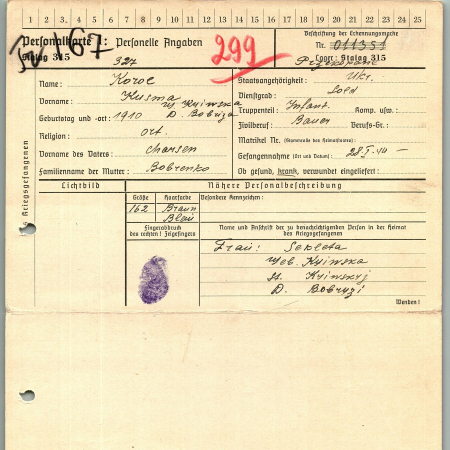 1 2 3 4 5 6 7 8 9 10 11 12 13 14 15 16 17 18 19 20 21 22 23 24 25
Personalkarte I: Personelle Angaben
Stalag 315
327
299
Beschriftung der Erkennungsmarke
Nr. 011351
Lager: Stalag 315
Kriegsgefangenen
Name: Korol
Vorname: Kusma
Geburtstag und -ort: 1910 D. Bobryza
Religion: ort.
Vorname des Vaters:
Familienname der Mutter: Bobrenko
Staatsangehörigkeit: Ukr.
Dienstgrad: Sold
Truppenteil: Infant. Komp. usw.:
Zivilberuf: Bauer Berufs-Gr.:
Matrikel Nr. (Stammrolle des Heimatstaates):
Gefangennahme (Ort und Datum):
Ob gesund, krank, verwundet eingeliefert:
Lichtbild
Nähere Personalbeschreibung
Größe Haarfarbe Besondere Kennzeichen:
162 Braun
Blau
Fingerabdruck
des rechten! Zeigefingers
Name und Anschrift der zu benachrichtigenden Person in der Heimat
des Kriegsgefangenen
Frau: Sekleta
Kyiwska
st. Kyiwskyj
D. Bobryzi
Wenden!